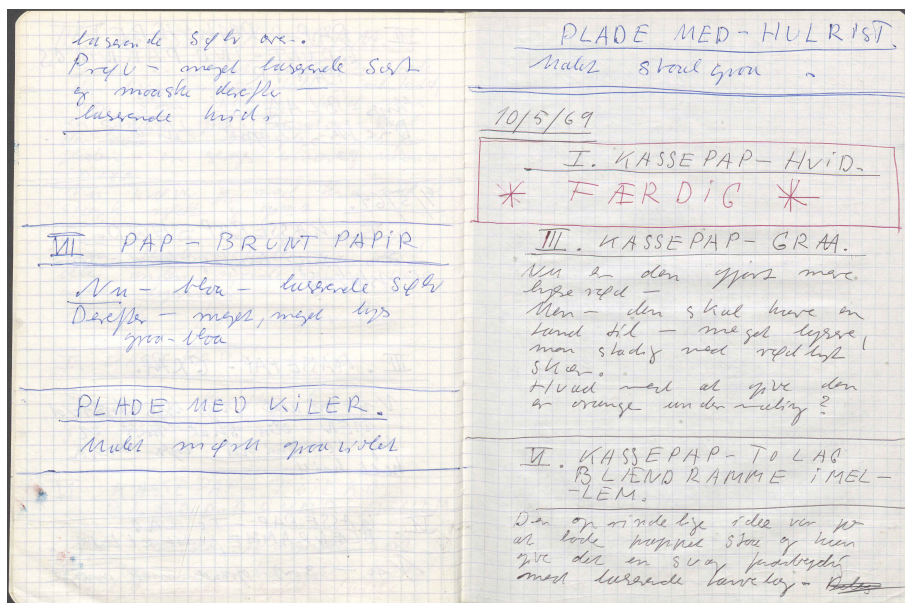 laserende sølv over.
Prøv – meget laserende sort
og maaske derefter –
laserende hvid.
VII PAP – BRUNT PAPIR
Nu – blaa – laserende sølv
Derefter – meget, meget lys
graa-blaa
PLADE MED KILER.
Malet mørk graaviolet
PLADE MED – HULRIST.
Malet staalgraa
10/5/69
I. KASSEPAP – HVID.
* FÆRDIG *
III. KASSEPAP – GRAA.
Nu er den gjort mere
lyserød –
Men – den skal have en
tand til – meget lysere,
men stadig med rødligt
skær.
Hvad med at give den
en orange undermaling?
VI. KASSEPAP – TO LAG
BLÆNDRAMME IMEL-
-LEM.
Den oprindelige idee var jo
at lade pappet staa og kun
give det en svag
med laserende farvelag –